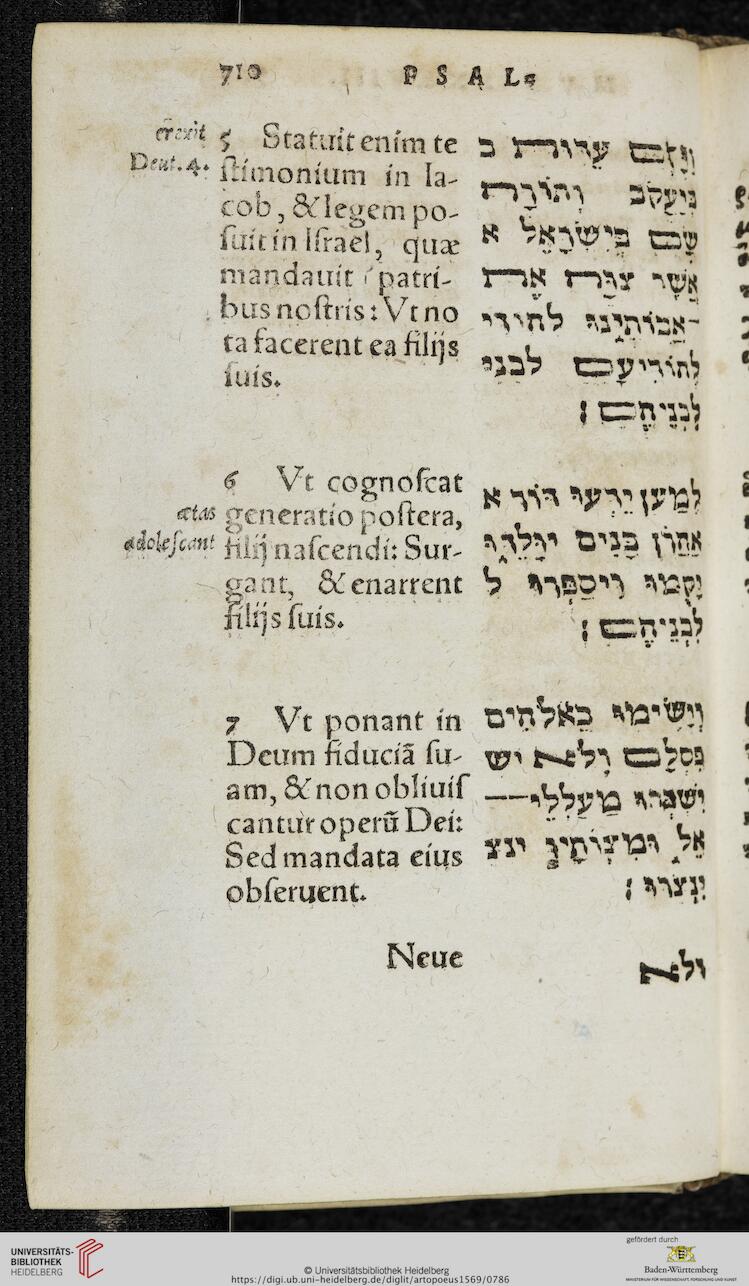 710 PSAL.
erexit
Deut.4.
5 Statuit enim te
ſtimonium in Ia-
cob, & legem po-
ſuit in Iſrael, quæ
mandauit patri-
bus noſtris: Vt no
ta facerent ea filijs
ſuis.
וַיָּקֶם עֵדוּת ב
בְּיַעֲקֹב וְתוֹרָה
שָׂם בְּיִשְׂרָאֵל א
אֲשֶׁר צִוָּה אֶת
אֲבוֹתֵינוּ לחודי
לְהוֹדִיעָם לבני
לִבְנֵיהֶם׃
ætas
adoleſcant
6 Vt cognoſcat
generatio poſtera,
filij naſcendi: Sur-
gant, & enarrent
filijs ſuis.
לְמַעַן יֵדְעוּ דּוֹר א
אַחֲרוֹן בָּנִים יִוָּלֵדוּ
יָקֻמוּ וִיסַפְּרוּ ל
לִבְנֵיהֶם׃
7 Vt ponant in
Deum fiduciã ſu-
am, & non obliuiſ
cantur operũ Dei:
Sed mandata eius
obſeruent.
וְיָשִׂימוּ בֵאלֹהִים
כִּסְלָם וְלֹא יש
יִשְׁכְּחוּ מַעַלְלֵי
אֵל וּמִצְוֹתָיו ינצ
יִנְצֹרוּ׃
Neue
ולא
UNIVERSITÄTS-
BIBLIOTHEK
HEIDELBERG
© Universitätsbibliothek Heidelberg
https://digi.ub.uni-heidelberg.de/diglit/artopoeus1569/0786
gefördert durch
Baden-Württemberg
MINISTERIUM FÜR WISSENSCHAFT, FORSCHUNG UND KUNST